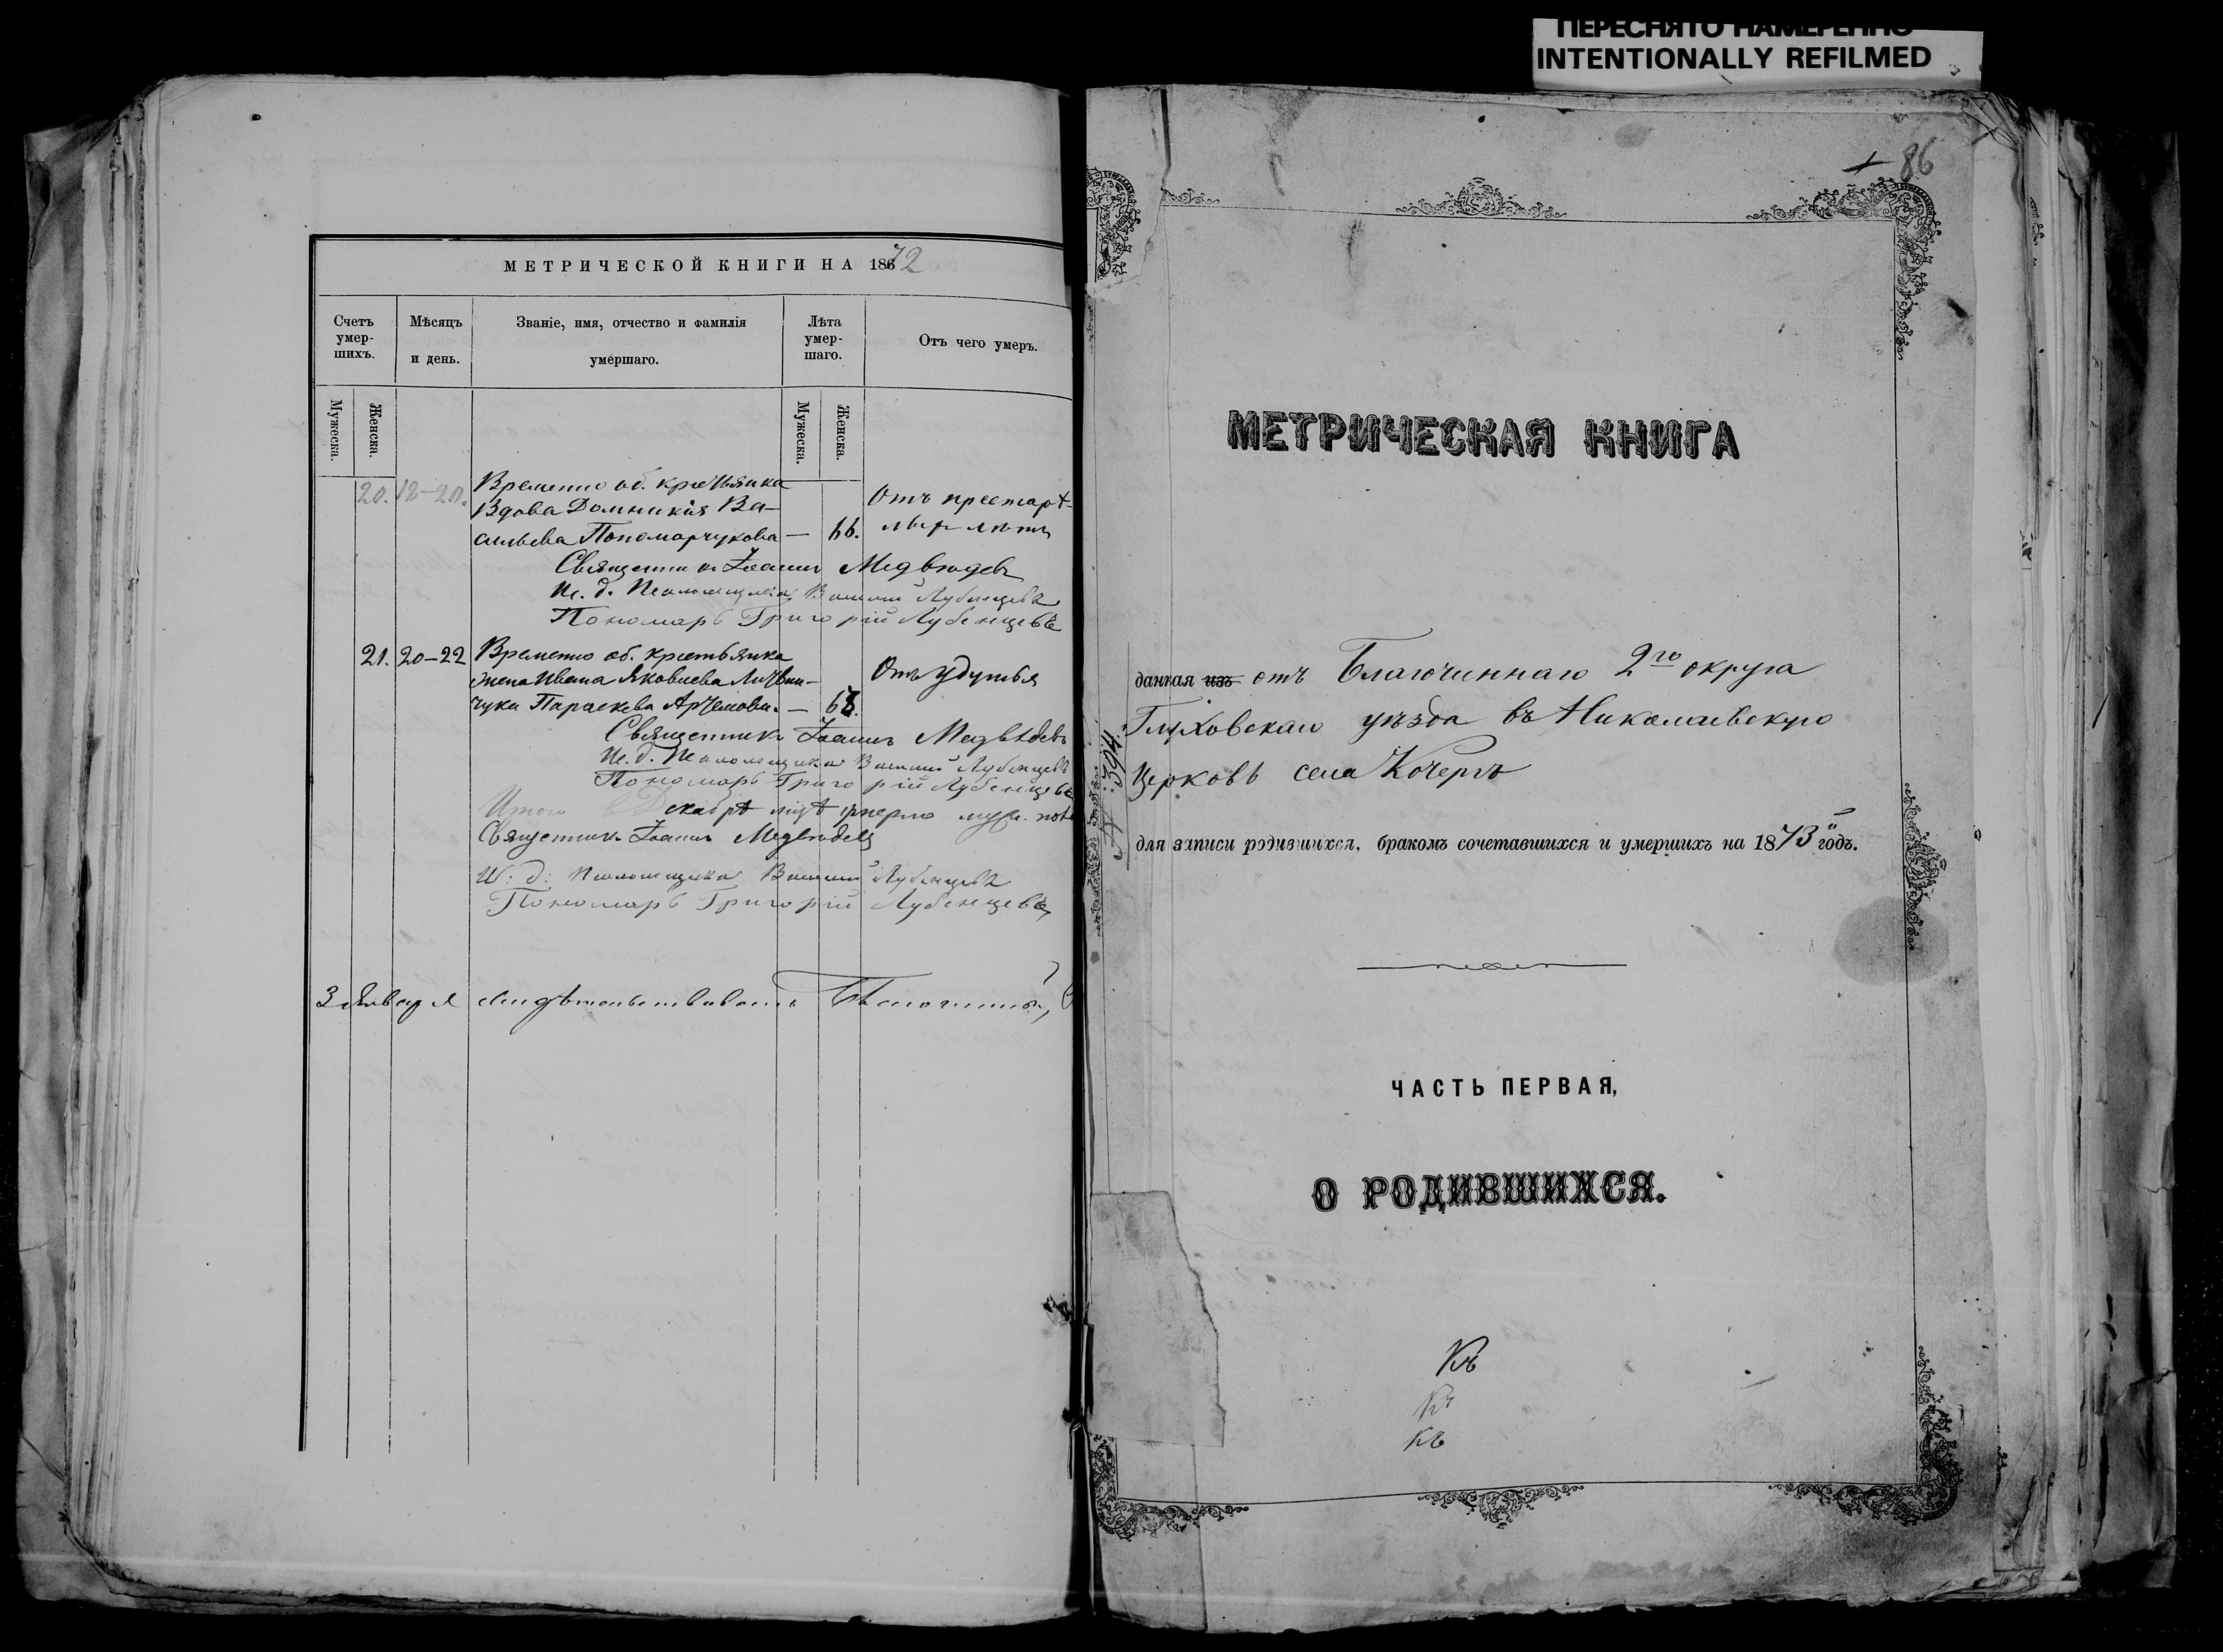 ПЕРЕСНЯТО НАМЕРЕННО
INTENTIONALLY REFILMED
МЕТРИЧЕСКОЙ КНИГИ НА 18672
Счетъ умер-шихъ.
Мѣсяцъ и день.
Званіе, имя, отчество и фамилія умершаго.
Лѣта умер-шаго.
Отъ чего умеръ.
Мужеска.
Женска.
Мужеска.
Женска.
20. 18–20. Временно об. крестьянка
Вдова Домникія Ва-
сильева Пономарчукова — 66.
Отъ престар-
Священникъ Іоаннъ Медвѣдевъ
И. д. Псаломщика Василій Лубенцевъ
Пономарь Григорій Лубенцевъ
21. 20–22 Временно об. крестьянка
жена Ивана Яковлева Литвин-
чука Параскева Артемова. — 68.
Отъ удушья
Священникъ Іоаннъ Медвѣдевъ
И. д. Псаломщика Василій Лубенцевъ
Пономарь Григорій Лубенцевъ
Итого в Декабрѣ м-цѣ умерло муж.
Священникъ Іоаннъ Медвѣдевъ
И: д: Псаломщика Василій Лубенцевъ
Пономарь Григорій Лубенцевъ
3 Января свидѣтельствовалъ Благочинный,
86
МЕТРИЧЕСКАЯ КНИГА
данная изъ отъ Благочиннаго 2го округа
Глуховскаго уѣзда въ Николаевскую
Церковь села Кочергъ
для записи родившихся, бракомъ сочетавшихся и умершихъ на 1873й годъ.
№ 394
ЧАСТЬ ПЕРВАЯ,
О РОДИВШИХСЯ.
Къ
Къ
Къ